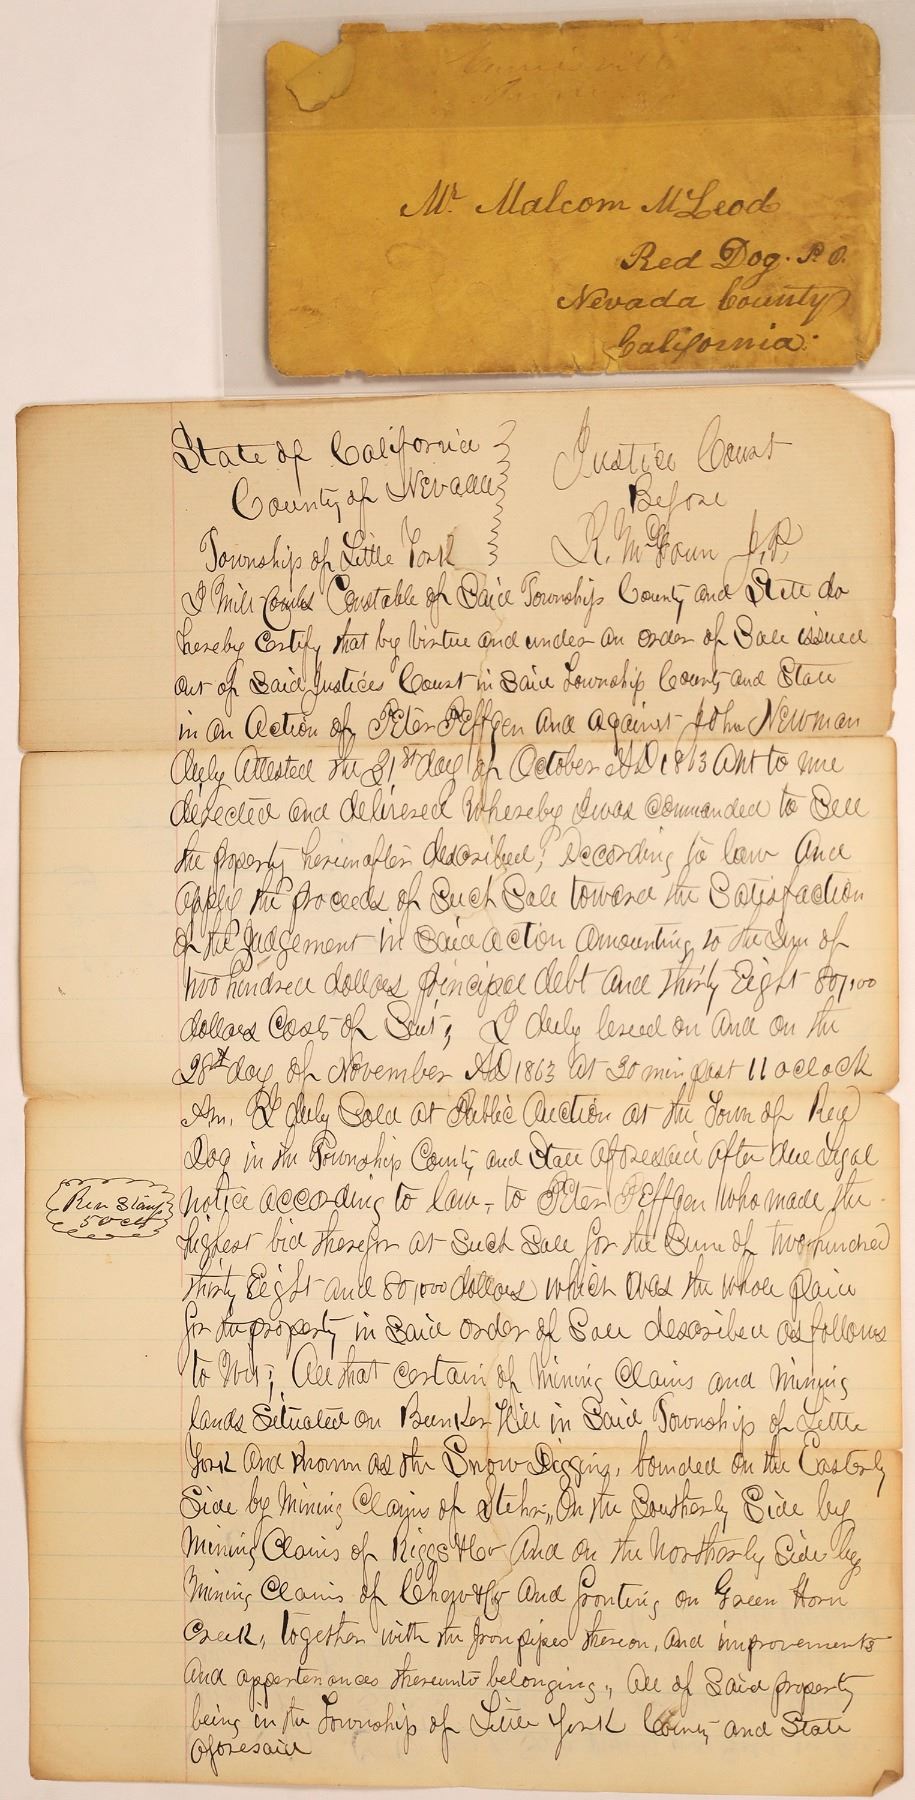 Mr. Malcom McLeod
Red Dog. P.O.
Nevada County
California.
State of California
County of Nevada
Township of Little York
Justice Court
Before
J.P.
Constable of Said Township County and State do
hereby Certify that by Virtue and under an order of Sale issued
out of Said Justices Court in Said Township County and State
in an Action of Peter Peffgen and against John Newman
duly Attested the 31st day of October AD 1863 to me
directed and delivered Whereby I was Commanded to Sell
the property hereinafter described, According to law And
apply the proceeds of Such Sale toward the Satisfaction
of the Judgement in Said Action Amounting to the Sum of
two hundred dollars principal debt And Thirty Eight 80/100
dollars Costs of Suit, I duly levied on and on the
28th day of November AD 1863 at 30 min past 11 oclock
Am. I duly Sold at Public Auction at the Town of Red
Dog in the Township County and State aforesaid after due Legal
Rev Stamp
50 cts
notice according to law - to Peter Peffgen who made the
highest bid therefor at Such Sale for the Sum of two hundred
thirty Eight and 80/100 dollars which was the whole
for the property in Said order of Sale described as follows
to Wit; All that certain of Mining Claims and Mining
lands Situated on Bunker Hill in Said Township of Little
York And Known as the Snow Diggins, bounded on the Easterly
Side by Mining Claims of On the Southerly Side by
Mining Claims of Riggs & Co And on the Northerly Side by
Mining Claims of & Co And fronting on Green Horn
Creek, together with the Iron pipes thereon, And improvements
And appertenances thereunto belonging, All of Said property
being in the Township of Little York County and State
aforesaid